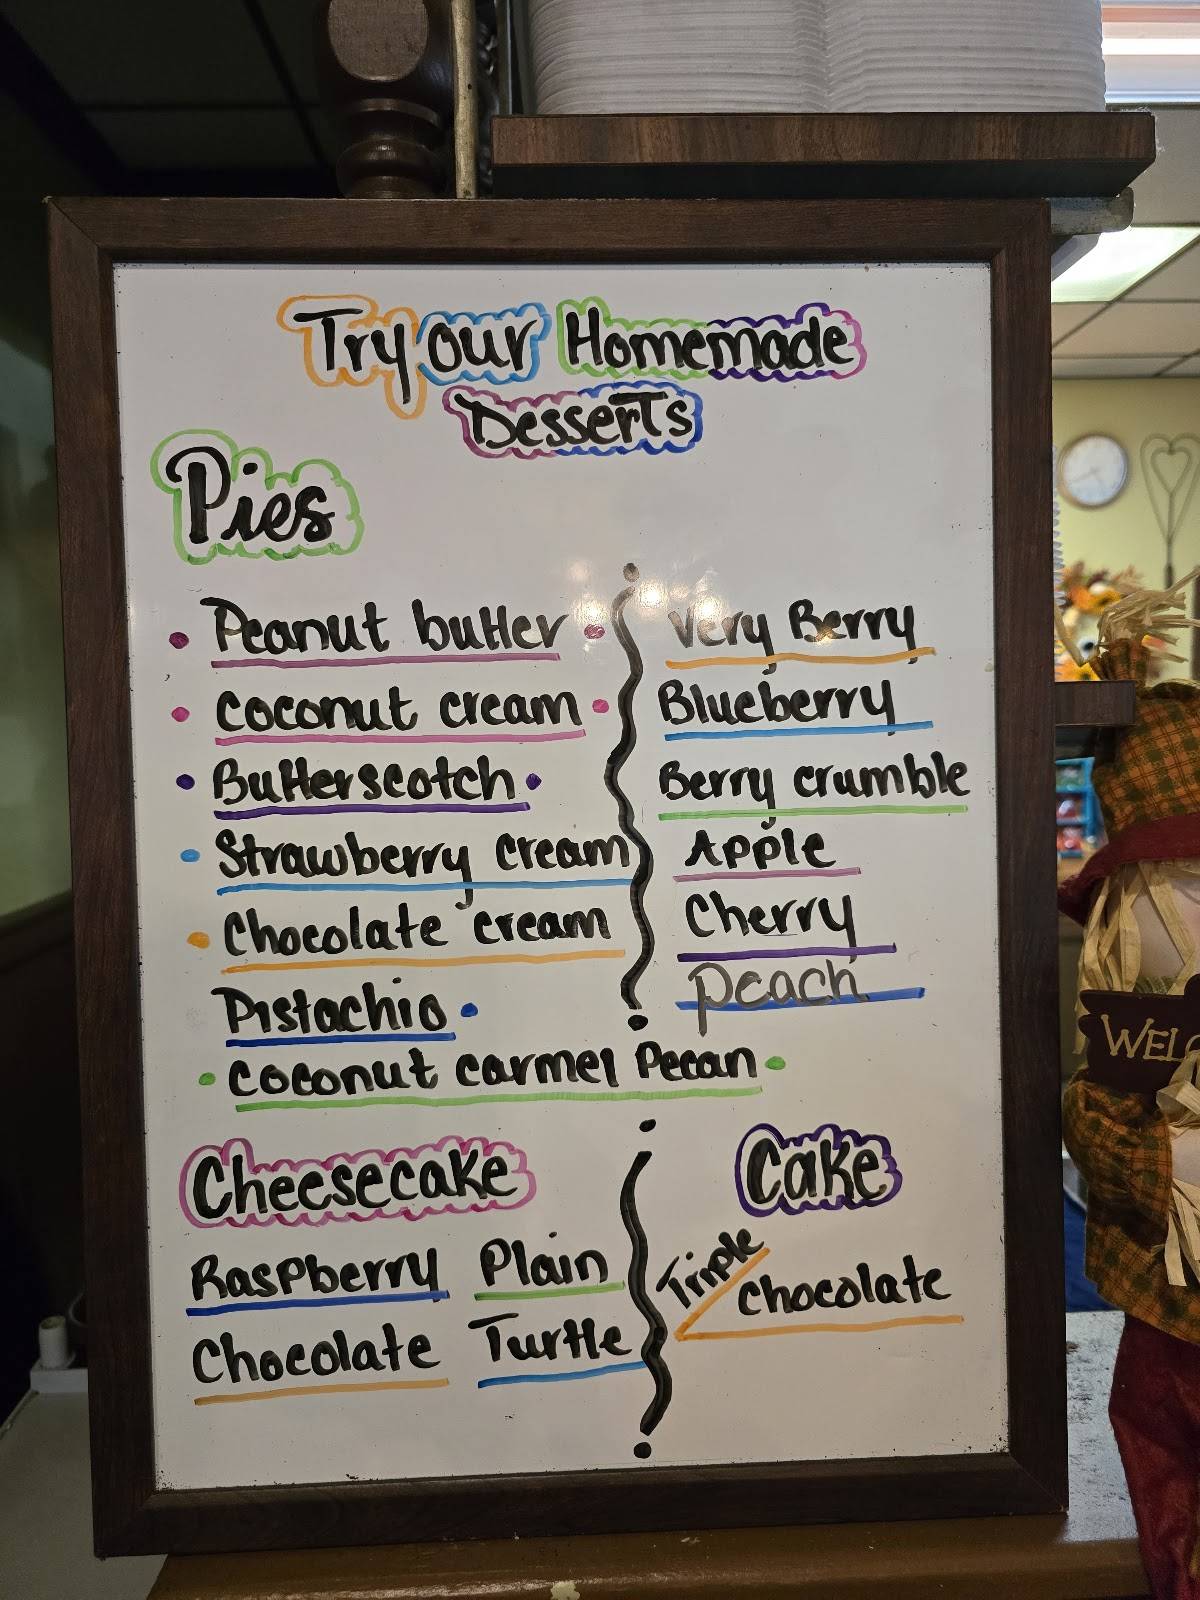 Try our Homemade
Desserts
Pies
Peanut butter
Coconut cream
Butterscotch
Strawberry cream
Chocolate cream
Pistachio
Coconut carmel Pecan
Very Berry
Blueberry
Berry crumble
Apple
Cherry
peach
Cheesecake
Raspberry Plain
Chocolate Turtle
Cake
Triple
Chocolate
WELC